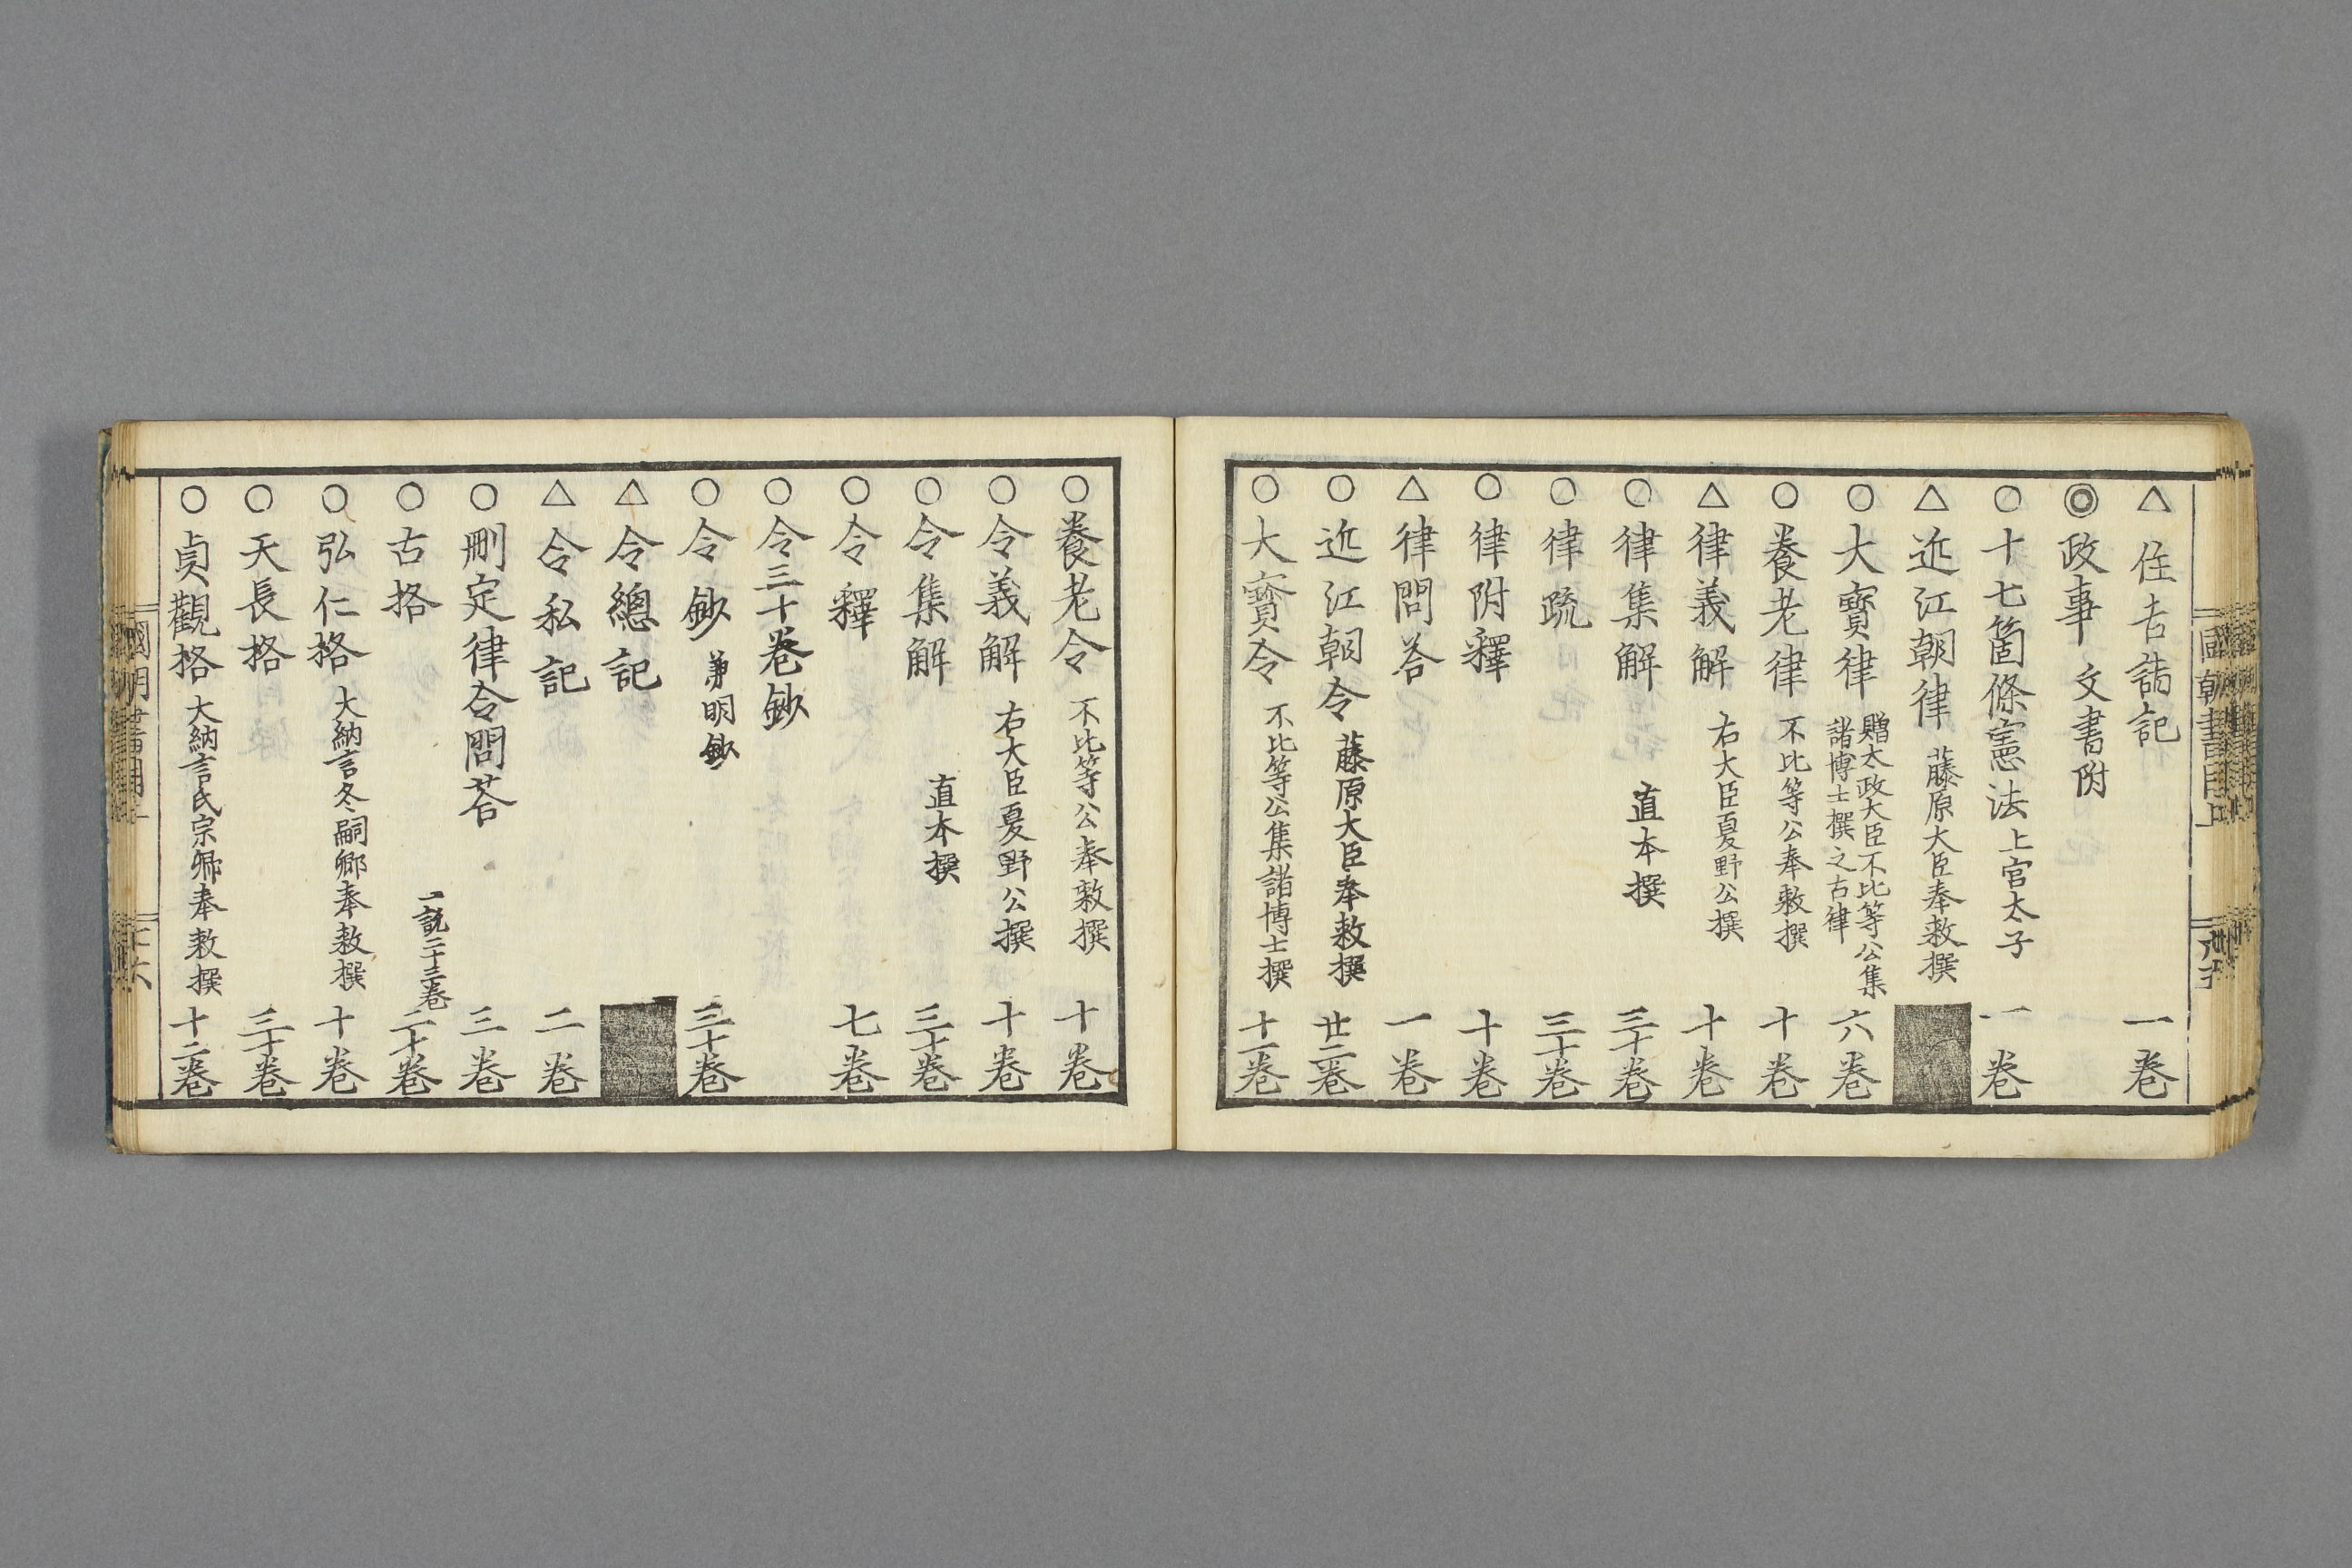 國朝書目上
△住吉詣記 一卷
◎政事 文書附
○十七箇條憲法 上宮太子 一卷
△近江朝律 藤原大臣奉敕撰
○大寶律 贈太政大臣不比等公集諸博士撰之古律 六卷
○養老律 不比等公奉敕撰 十卷
△律義解 右大臣夏野公撰 十卷
○律集解 直本撰 三十卷
○律疏 三十卷
○律附釋 十卷
△律問荅 一卷
○近江朝令 藤原大臣奉敕撰 廿二卷
○大寶令 不比等公集諸博士撰 十一卷
○養老令 不比等公奉敕撰 十卷
○令義解 右大臣夏野公撰 十卷
○令集解 直本撰 三十卷
○令釋 七卷
○令三十卷鈔
○令鈔 弟明鈔 三十卷
△令總記
△令私記 二卷
○刪定律令問荅 三卷
○古格 一說二十三卷 二十卷
○弘仁格 大納言冬嗣卿奉敕撰 十卷
○天長格 三十卷
○貞觀格 大納言氏宗卿奉敕撰 十二卷